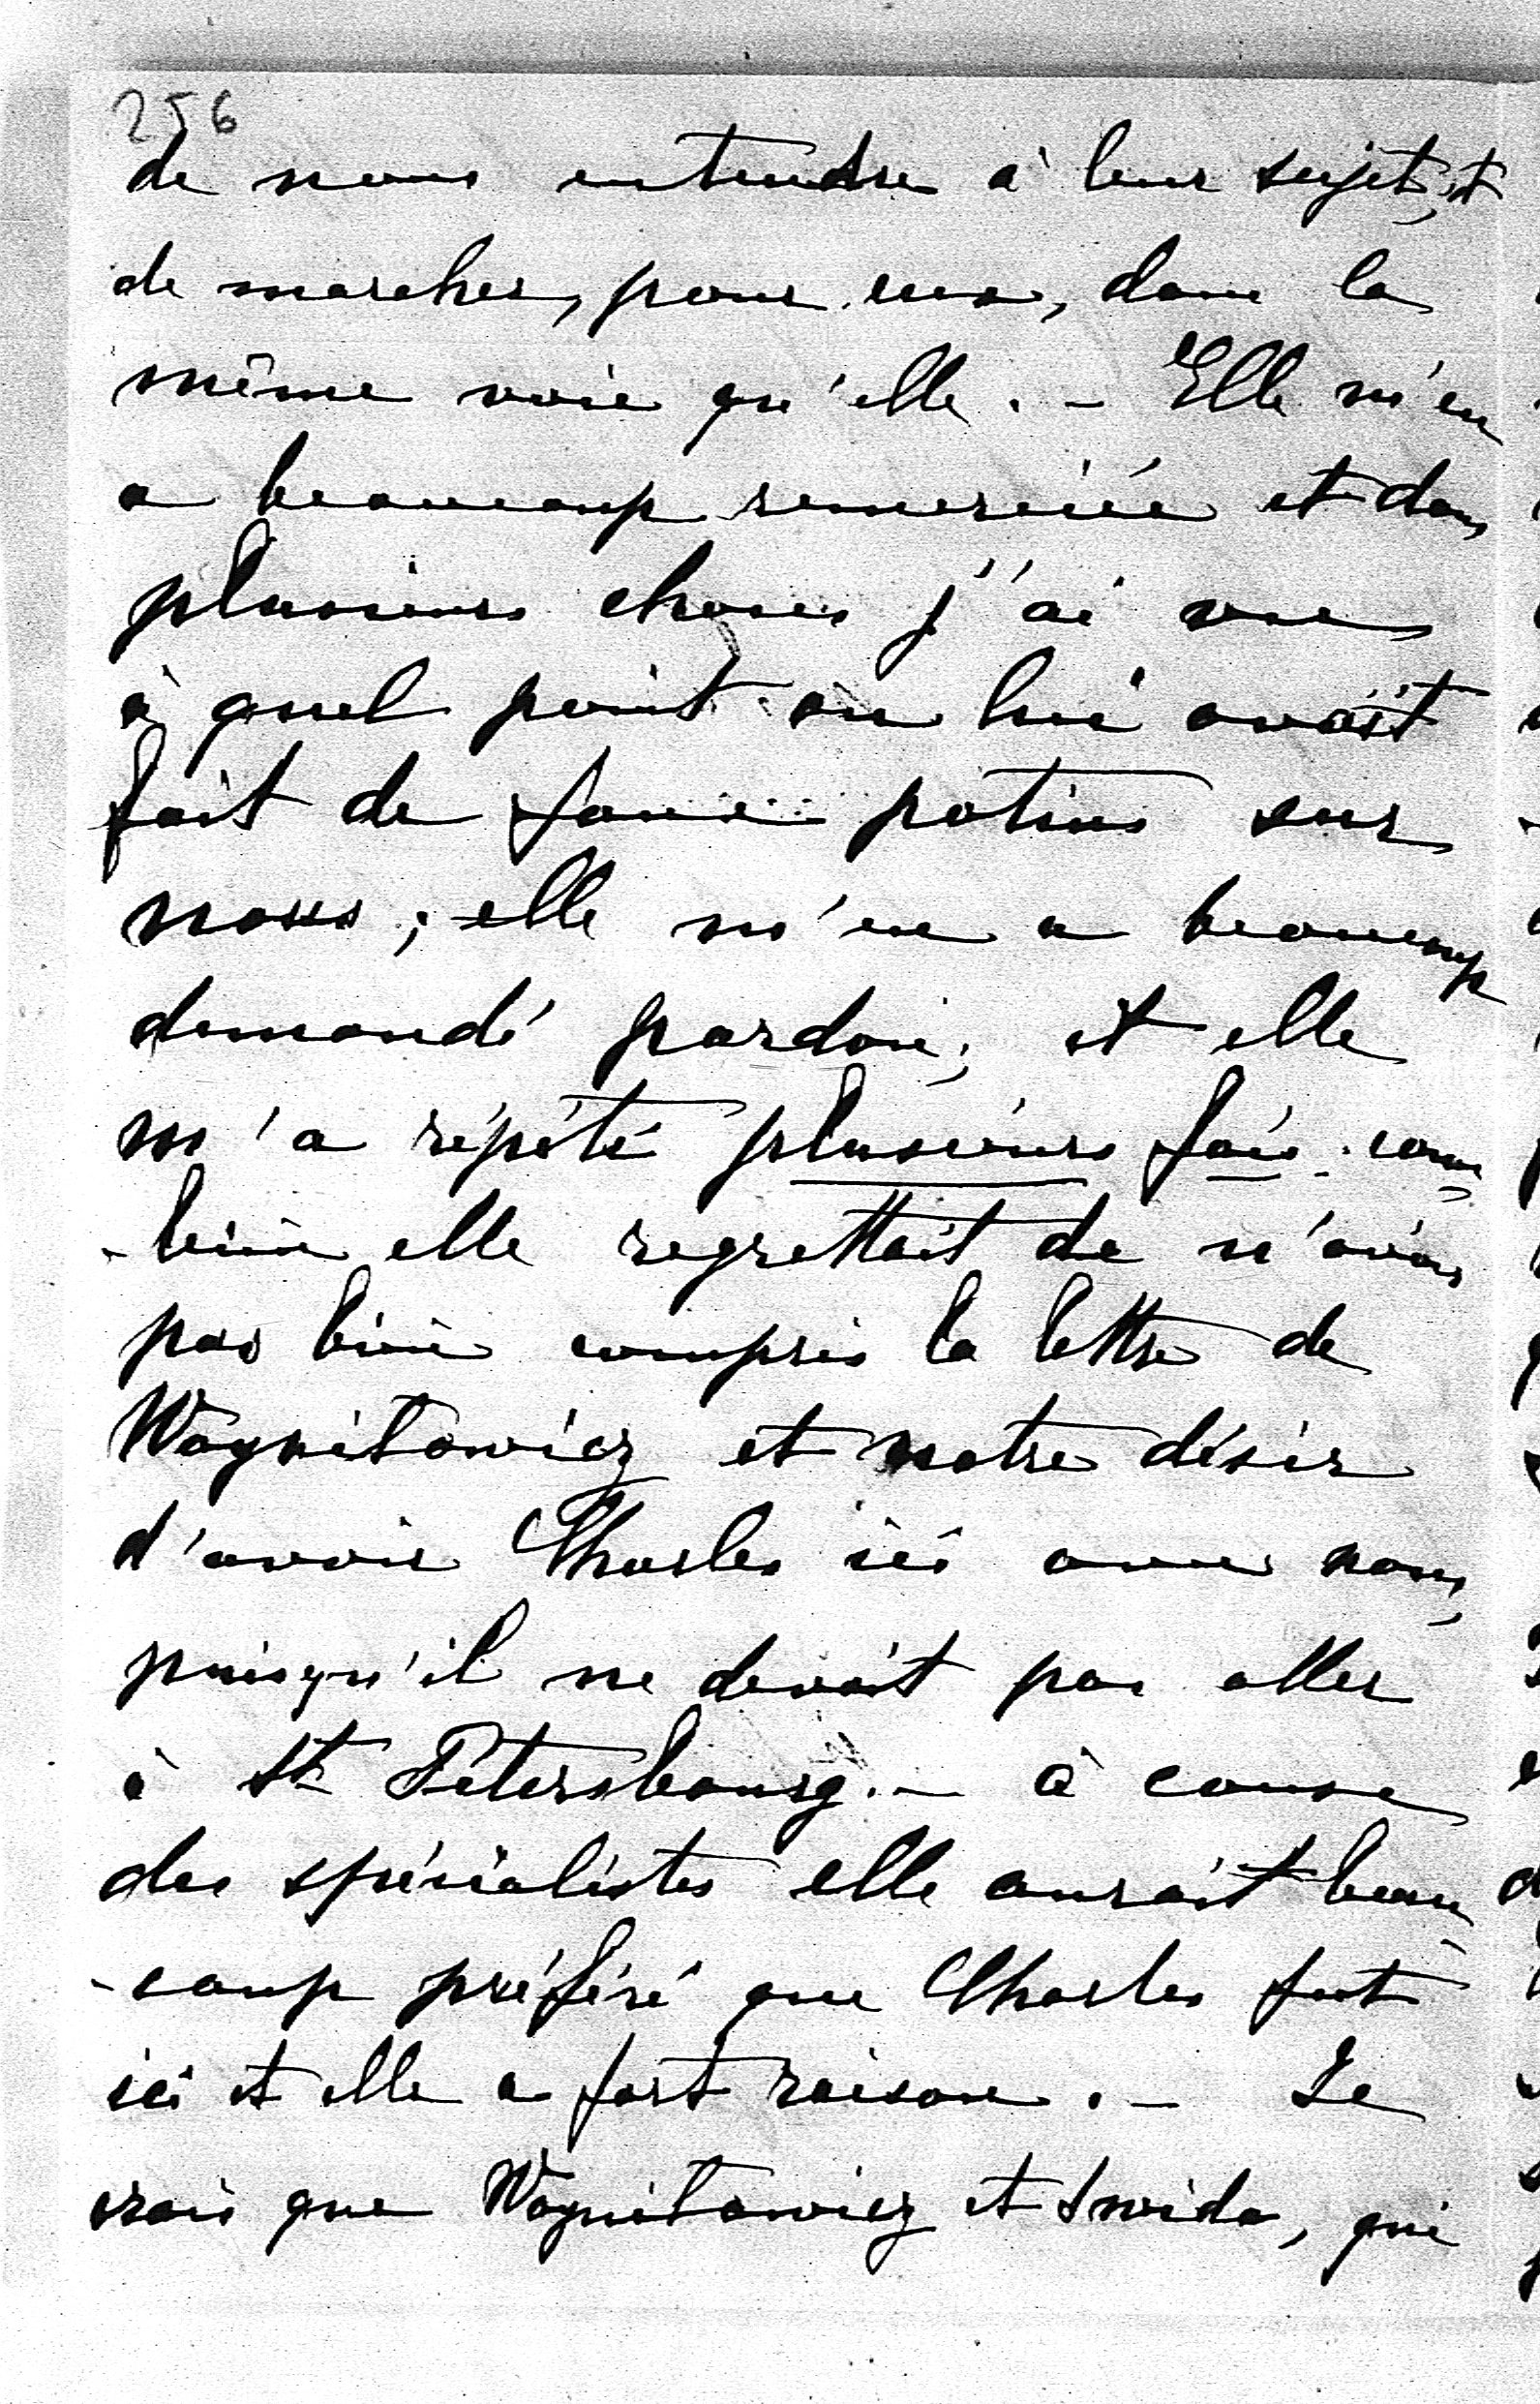 256
de nous entendre à leur sujet, et
de marcher, pour eux, dans la
même voie qu'elle. - Elle m'en
a beaucoup remerciée et dans
plusieurs choses j'ai vu
à quel point on lui avait
fait de faux potins sur
nous ; elle m'en a beaucoup
demandé pardon, et elle
m'a répété plusieurs fois com
-bien elle regrettait de n'avoir
pas bien compris la lettre de
Woynitowicz et notre désir
d'avoir Charles ici avec nous,
puisqu'il ne devait pas aller
à St Pétersbourg. - à cause
des spécialistes elle aurait beau
-coup préféré que Charles fut
ici et elle a fort raison. - Je
crois que Woynitowicz et Swida, qui